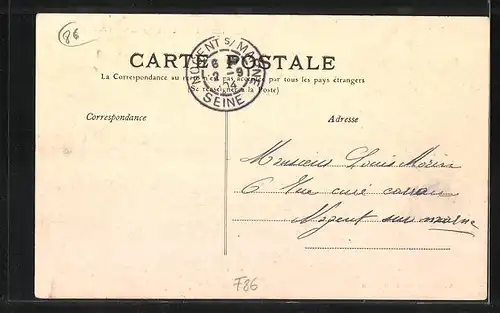 86
CARTE POSTALE
La Correspondance au recto n'est pas acceptée par tous les pays étrangers
(Se renseigner à la Poste)
NOGENT S/ MARNE
6
2 - 9
04
SEINE
Correspondance
Adresse
Monsieur Louis Morin
6 Rue curé carreau
Nogent sur marne
F86